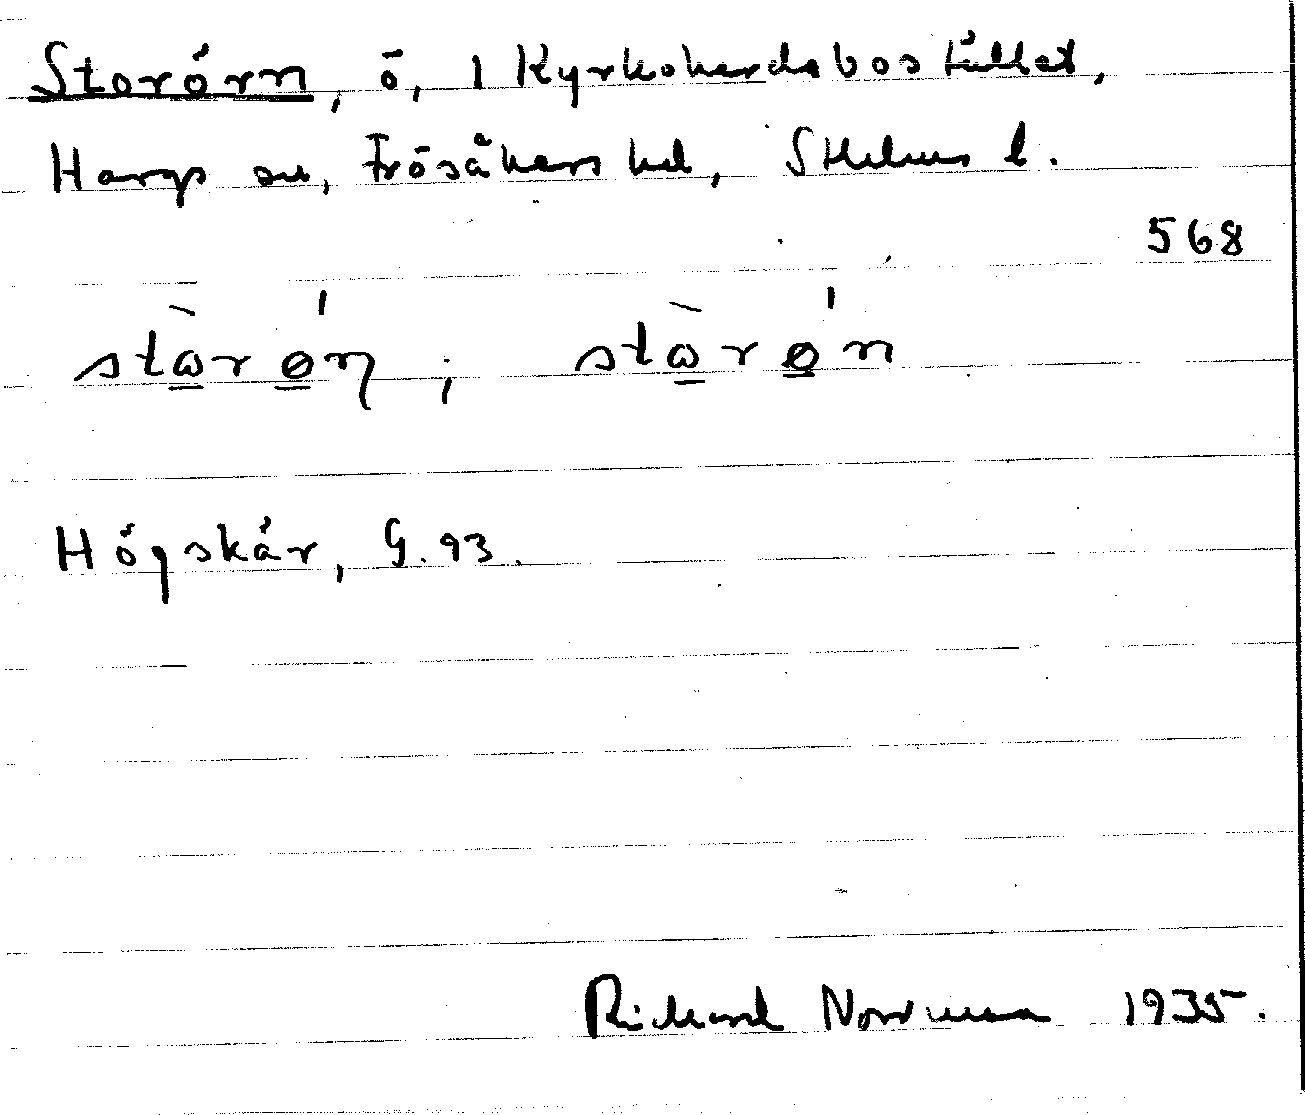 Storörn, ö, 1 Kyrkoherdabostället,
Hargs sn, Frösåkers hd, Sthlms l.
568
stὼrǿŋ; stὼrǿn
Högskär, G. 93.
Richard Norrman 1935.